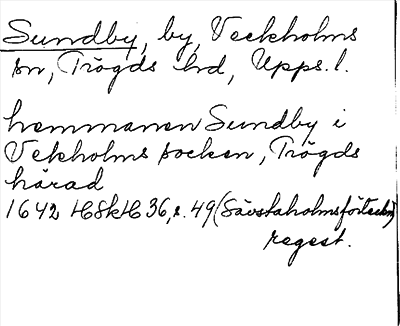 Sundby, by, Veckholms
sn, Trögds hd, Upps. l.
hemmanen Sundby i
Vekholms socken, Trögds
härad
1642 HSkH 36, s. 49 (Sävstaholmsförteckn)
regest.